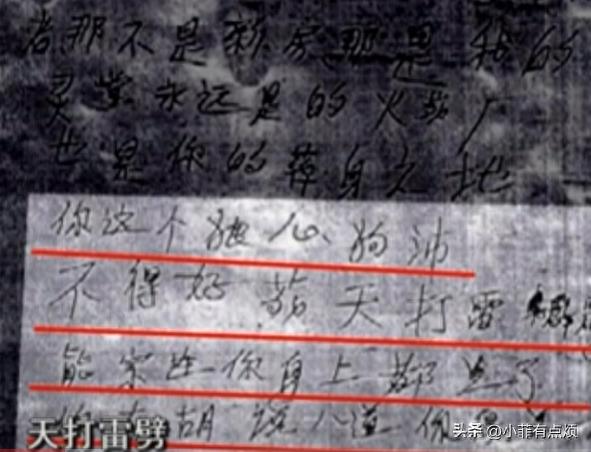 者那不是新房那是我的
灵堂永远是的火葬厂
也是你的葬身之地
你这个狼心狗沛
不得好 天打雷
能 你身上都 了
胡说八道你
天打雷劈
头条 @小菲有点烦